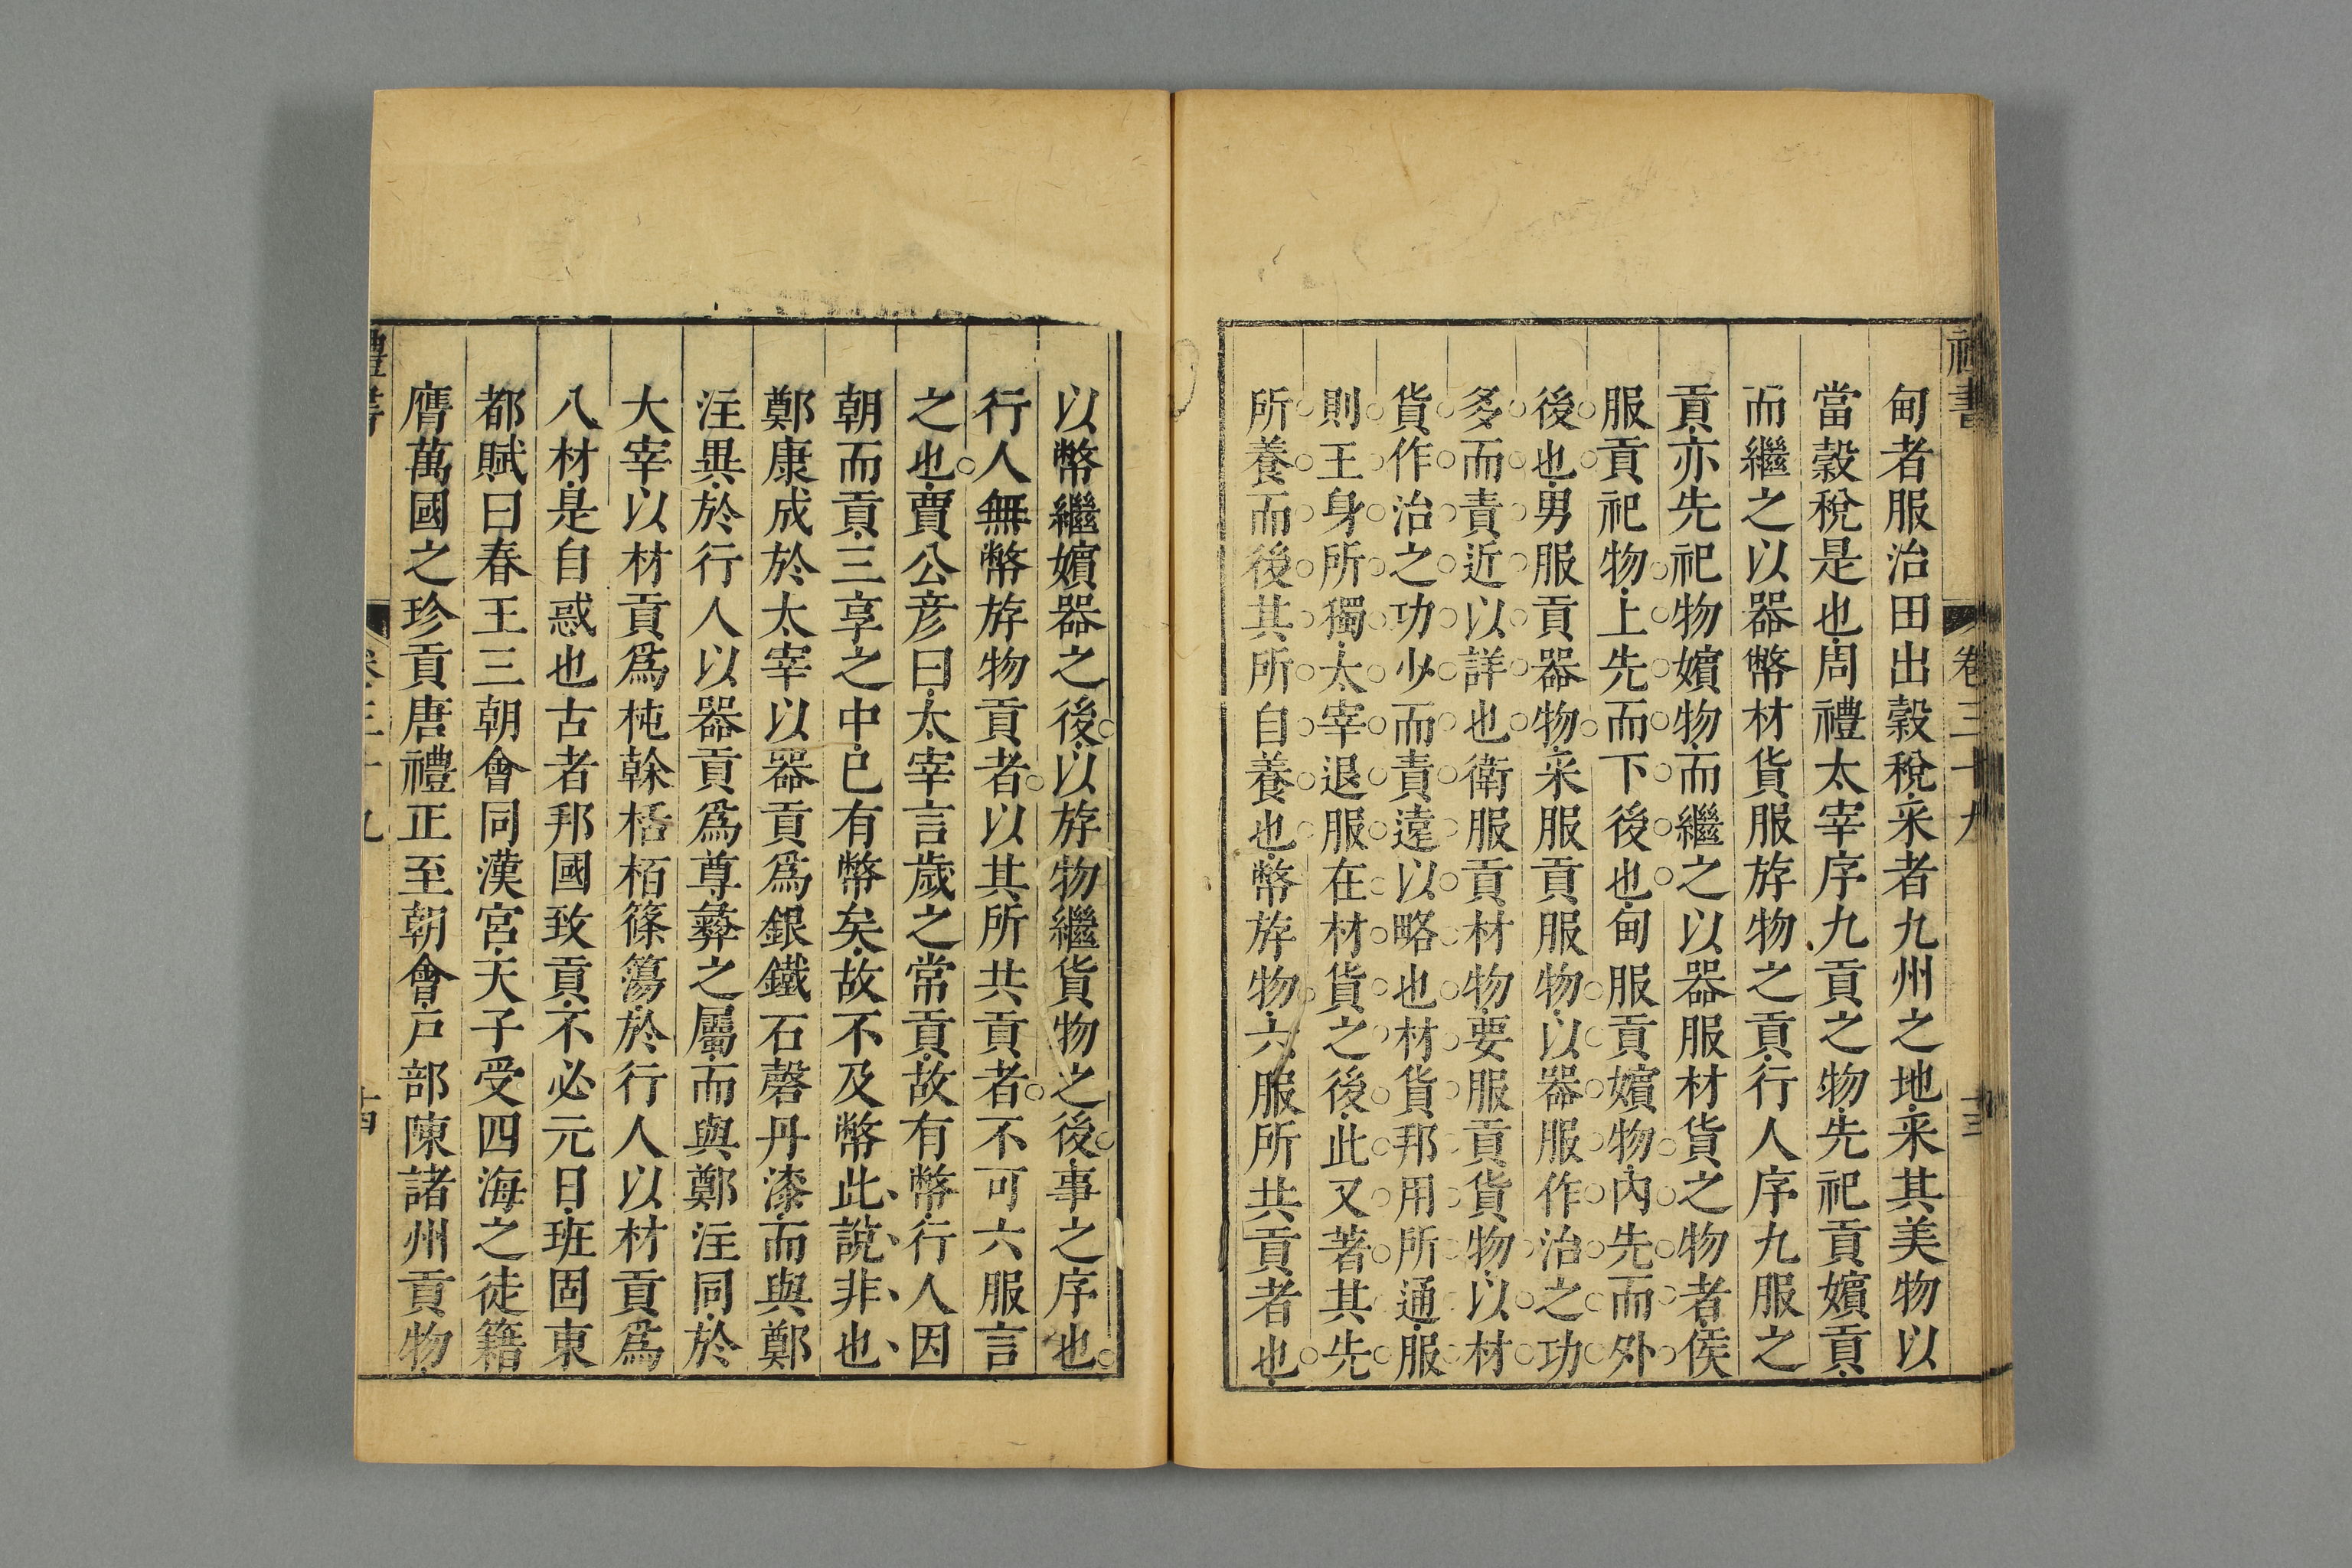 禮書 卷三十九 十三
甸者服治田出穀稅采者九州之地采其美物以
當穀稅是也周禮太宰序九貢之物先祀貢嬪貢
而繼之以器幣材貨服斿物之貢行人序九服之
貢亦先祀物嬪物而繼之以器服材貨之物者侯
服貢祀物上先而下後也甸服貢嬪物內先而外
後也男服貢器物采服貢服物以器服作治之功
多而責近以詳也衛服貢材物要服貢貨物以材
貨作治之功少而責遠以略也材貨邦用所通服
則王身所獨太宰退服在材貨之後此又著其先
所養而後其所自養也幣斿物六服所共貢者也
以幣繼嬪器之後以斿物繼貨物之後事之序也
行人無幣斿物貢者以其所共貢者不可六服言
之也賈公彥曰太宰言歲之常貢故有幣行人因
朝而貢三享之中已有幣矣故不及幣此說非也
鄭康成於太宰以器貢爲銀鐵石磬丹漆而與鄭
注異於行人以器貢爲尊彝之屬而與鄭注同於
大宰以材貢爲杶榦栝栢篠簜於行人以材貢爲
八材是自惑也古者邦國致貢不必元日班固東
都賦曰春王三朝會同漢宮天子受四海之徒籍
膺萬國之珍貢唐禮正至朝會戶部陳諸州貢物
禮書 卷三十九 十四